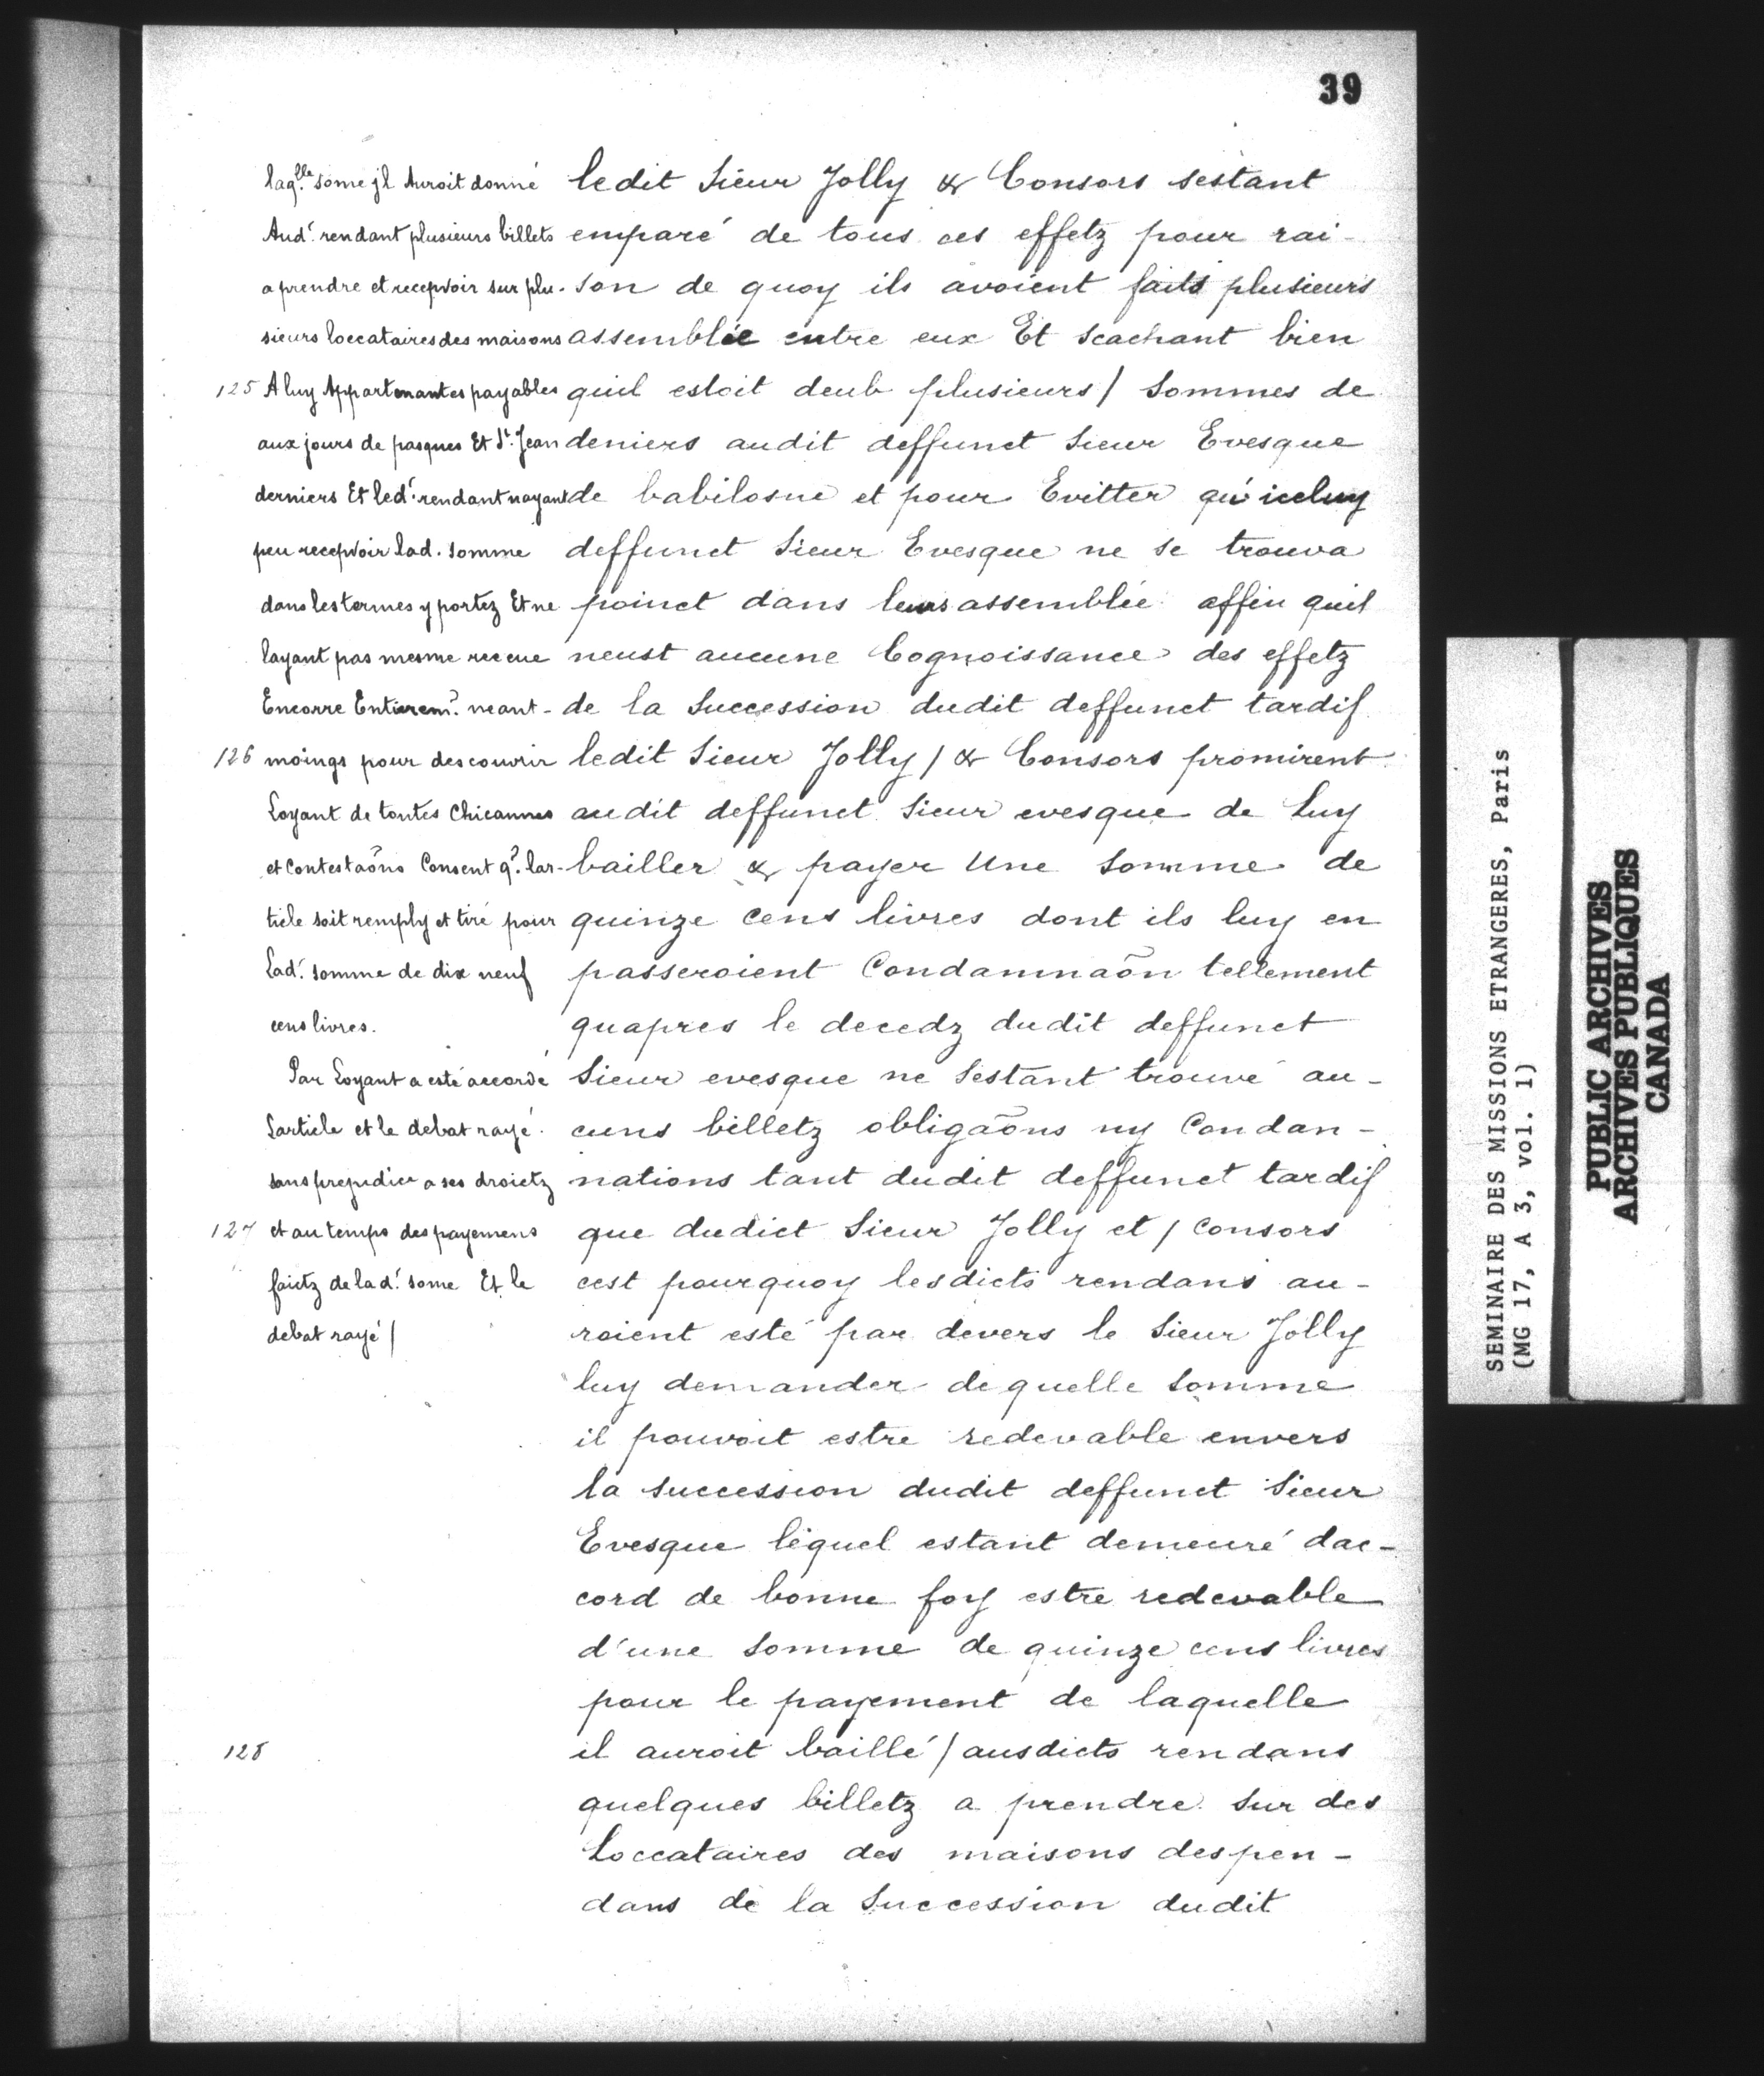 39
laq.lle some jl Auroit donné
Aud.t rendant plusieurs billets
a prendre et recepvoir sur plu-
sieurs loccataires des maisons
125 A luy Appartenantes payables
aux jours de pasques Et S.t Jean
derniers Et led.t rendant nayant
peu recepvoir lad. somme
dans les termes y portez Et ne
layant pas mesme receue
Encorre Entierem.t neant-
126 moings pour descouvrir
Loyant de toutes Chicannes
et Contestaõns Consent q.e lar-
ticle soit remply et tiré pour
Lad.t somme de dix neuf
cens livres.
Par Loyant a esté accordé
Larticle et le debat rayé.
sans prejudice a ses droictz
127 et au temps des payemens
faictz de la d.t some Et le
debat rayé /
ledit Sieur Jolly & Consors sestant
emparé de tous ces effetz pour rai-
son de quoy ils avoient faits plusieurs
assemblée entre eux Et scachant bien
quil estoit deub plusieurs / Sommes de
deniers audit deffunct Sieur Evesque
de babilosne et pour Evitter qu'iceluy
deffunct Sieur Evesque ne se trouva
poinct dans leurs assemblée affin quil
neust aucune Cognoissance des effetz
de la Succession dudit deffunct tardif
ledit Sieur Jolly / & Consors promirent
audit deffunct Sieur evesque de Luy
bailler & payer Une Somme de
quinze cens livres dont ils luy en
passeroient Condamnaõn tellement
quapres le decedz dudit deffunct
Sieur evesque ne Sestant trouvé au-
cuns billetz obligaõns ny Condan-
nations tant dudit deffunct tardif
que dudict Sieur Jolly et / Consors
cest pourquoy lesdicts rendans au-
roient esté par devers le Sieur Jolly
luy demander de quelle Somme
il pouvoit estre redevable envers
la succession dudit deffunct Sieur
Evesque lequel estant demeuré dac-
cord de bonne foy estre redevable
d'une Somme de quinze cens livres
pour le payement de laquelle
128 il auroit baillé / ausdicts rendans
quelques billetz a prendre Sur des
Loccataires des maisons despen-
dans de la Succession dudit
SEMINAIRE DES MISSIONS ETRANGERES, Paris
(MG 17, A 3, vol. 1)
PUBLIC ARCHIVES
ARCHIVES PUBLIQUES
CANADA